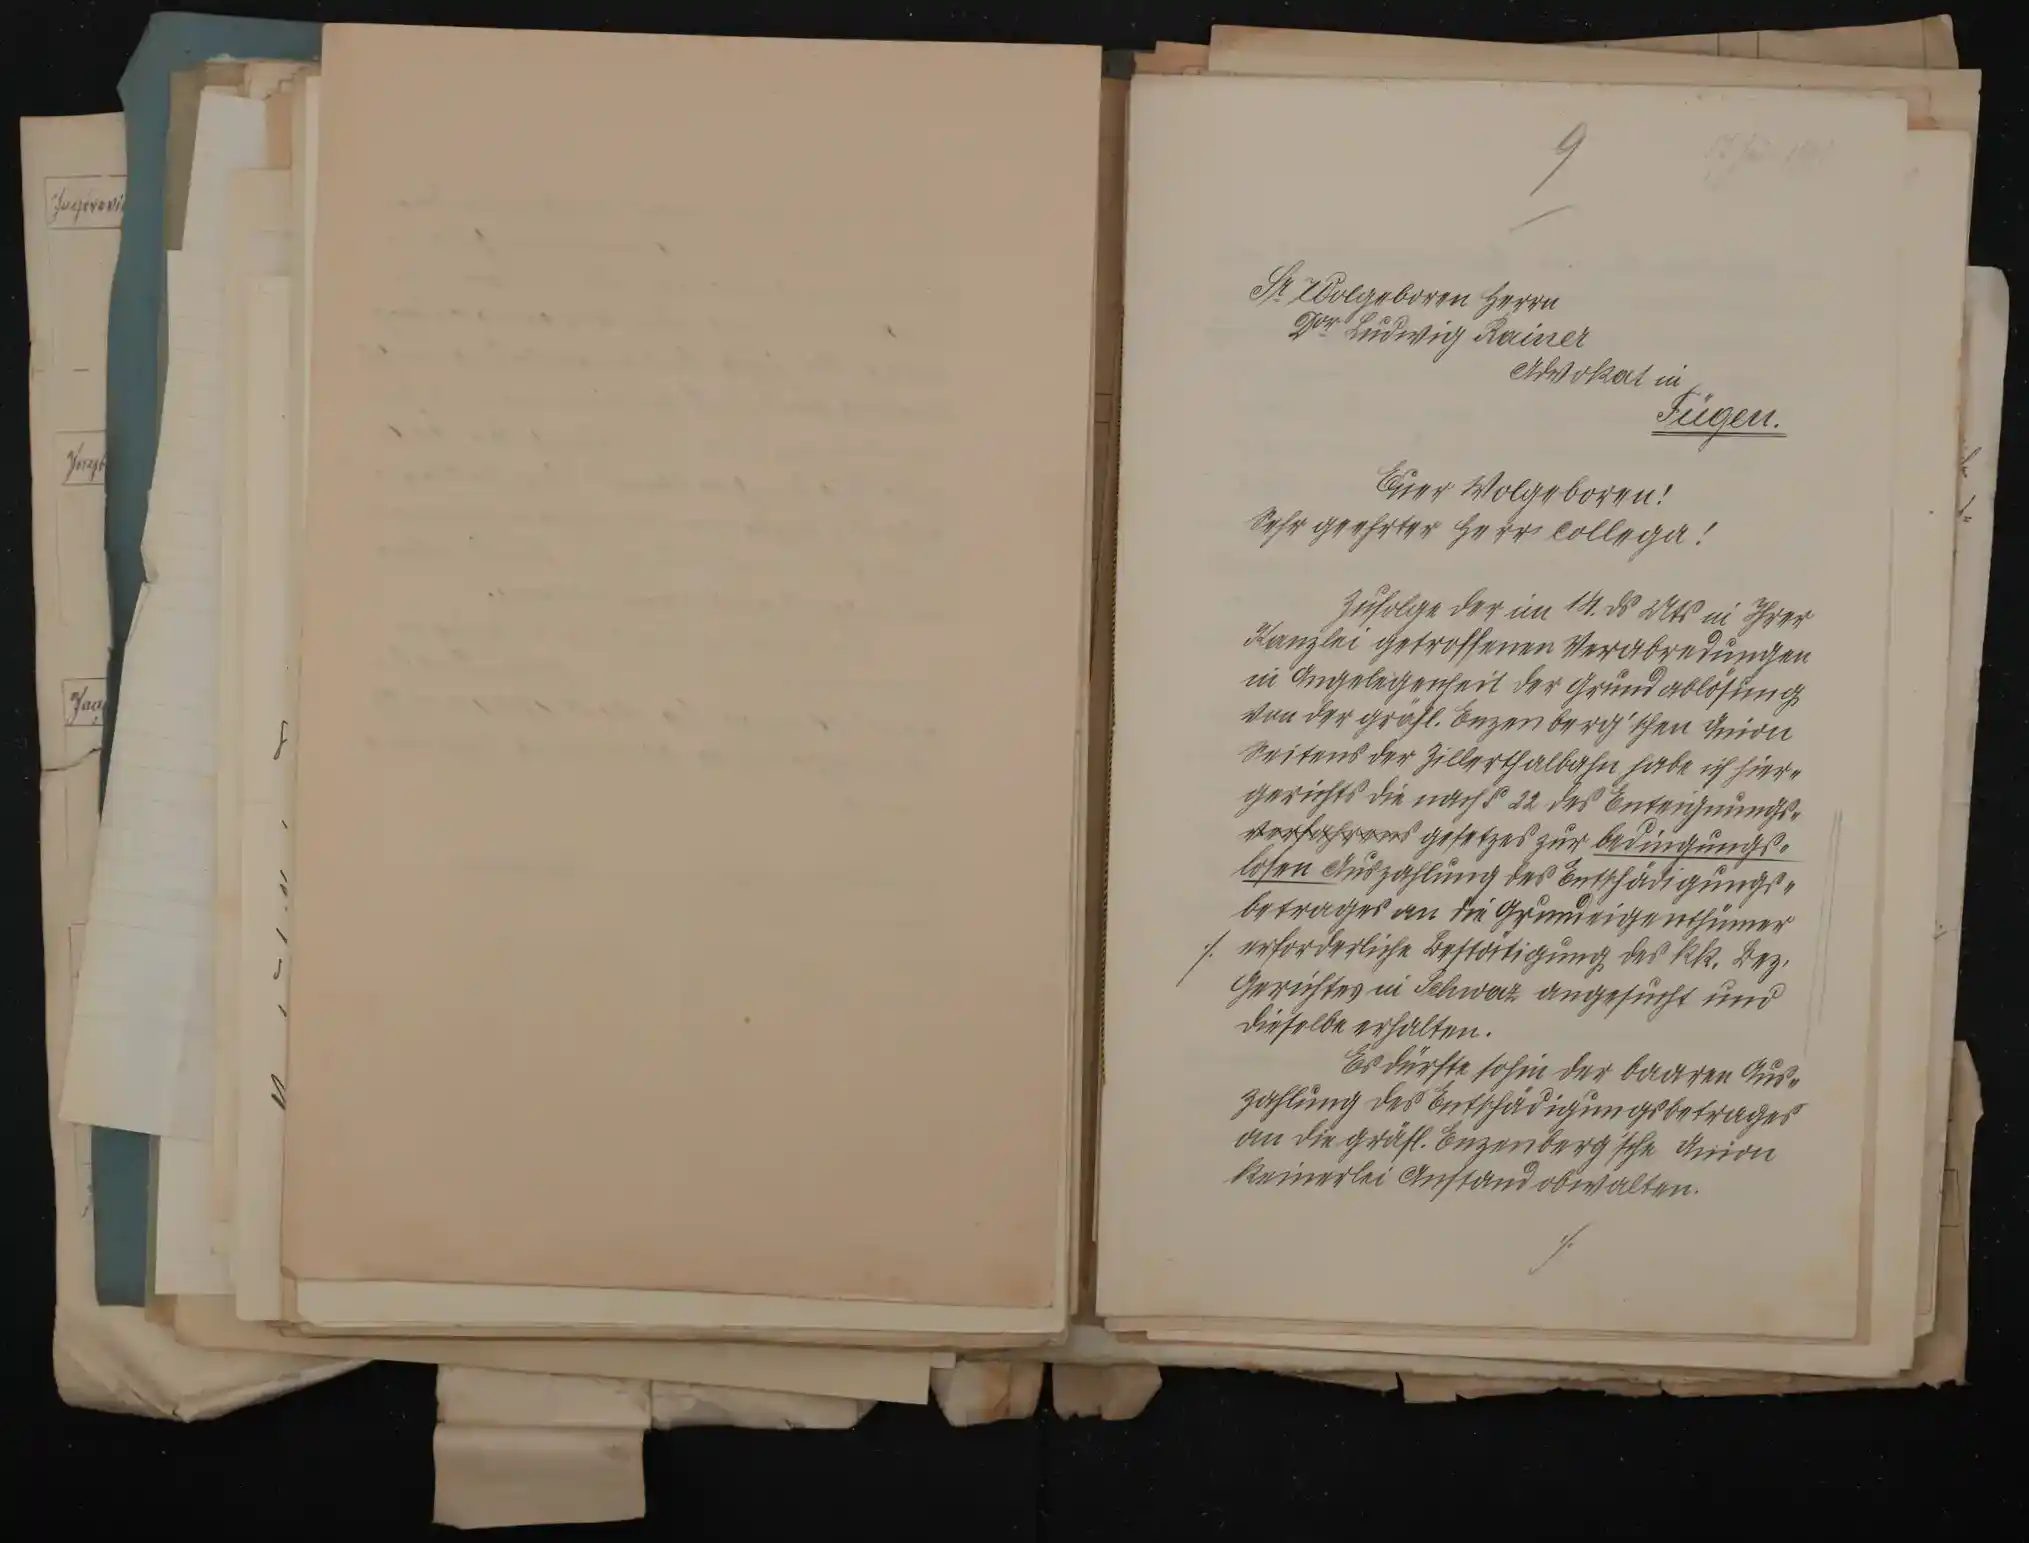 9
Sr Wolgeboren Herrn
Dor Ludwig Rainer
Advokat in
Fügen.
Euer Wolgeboren!
Sehr geehrter Herr Collega!
Zufolge der im 14. ds Mts in Ihrer
Kanzlei getroffenen Verabredungen
in Angelegenheit der Grundablösung
von der gräfl. Enzenberg'schen Union
Seitens der Zillerthalbahn habe ich hier-
gerichts die nach § 22 des Enteignungs-
verfahrens gesetzes zur bedingungs-
losen Auszahlung des Entschädigungs-
betrages an die Grundeigenthümer
./. erforderliche Bestätigung des kk. Bez.
Gerichtes in Schwaz angesucht und
dieselbe erhalten.
Es dürfte sohin der baaren Aus-
zahlung des Entschädigungsbetrages
an die gräfl. Enzenberg'sche Union
keinerlei Anstand obwalten.
./.